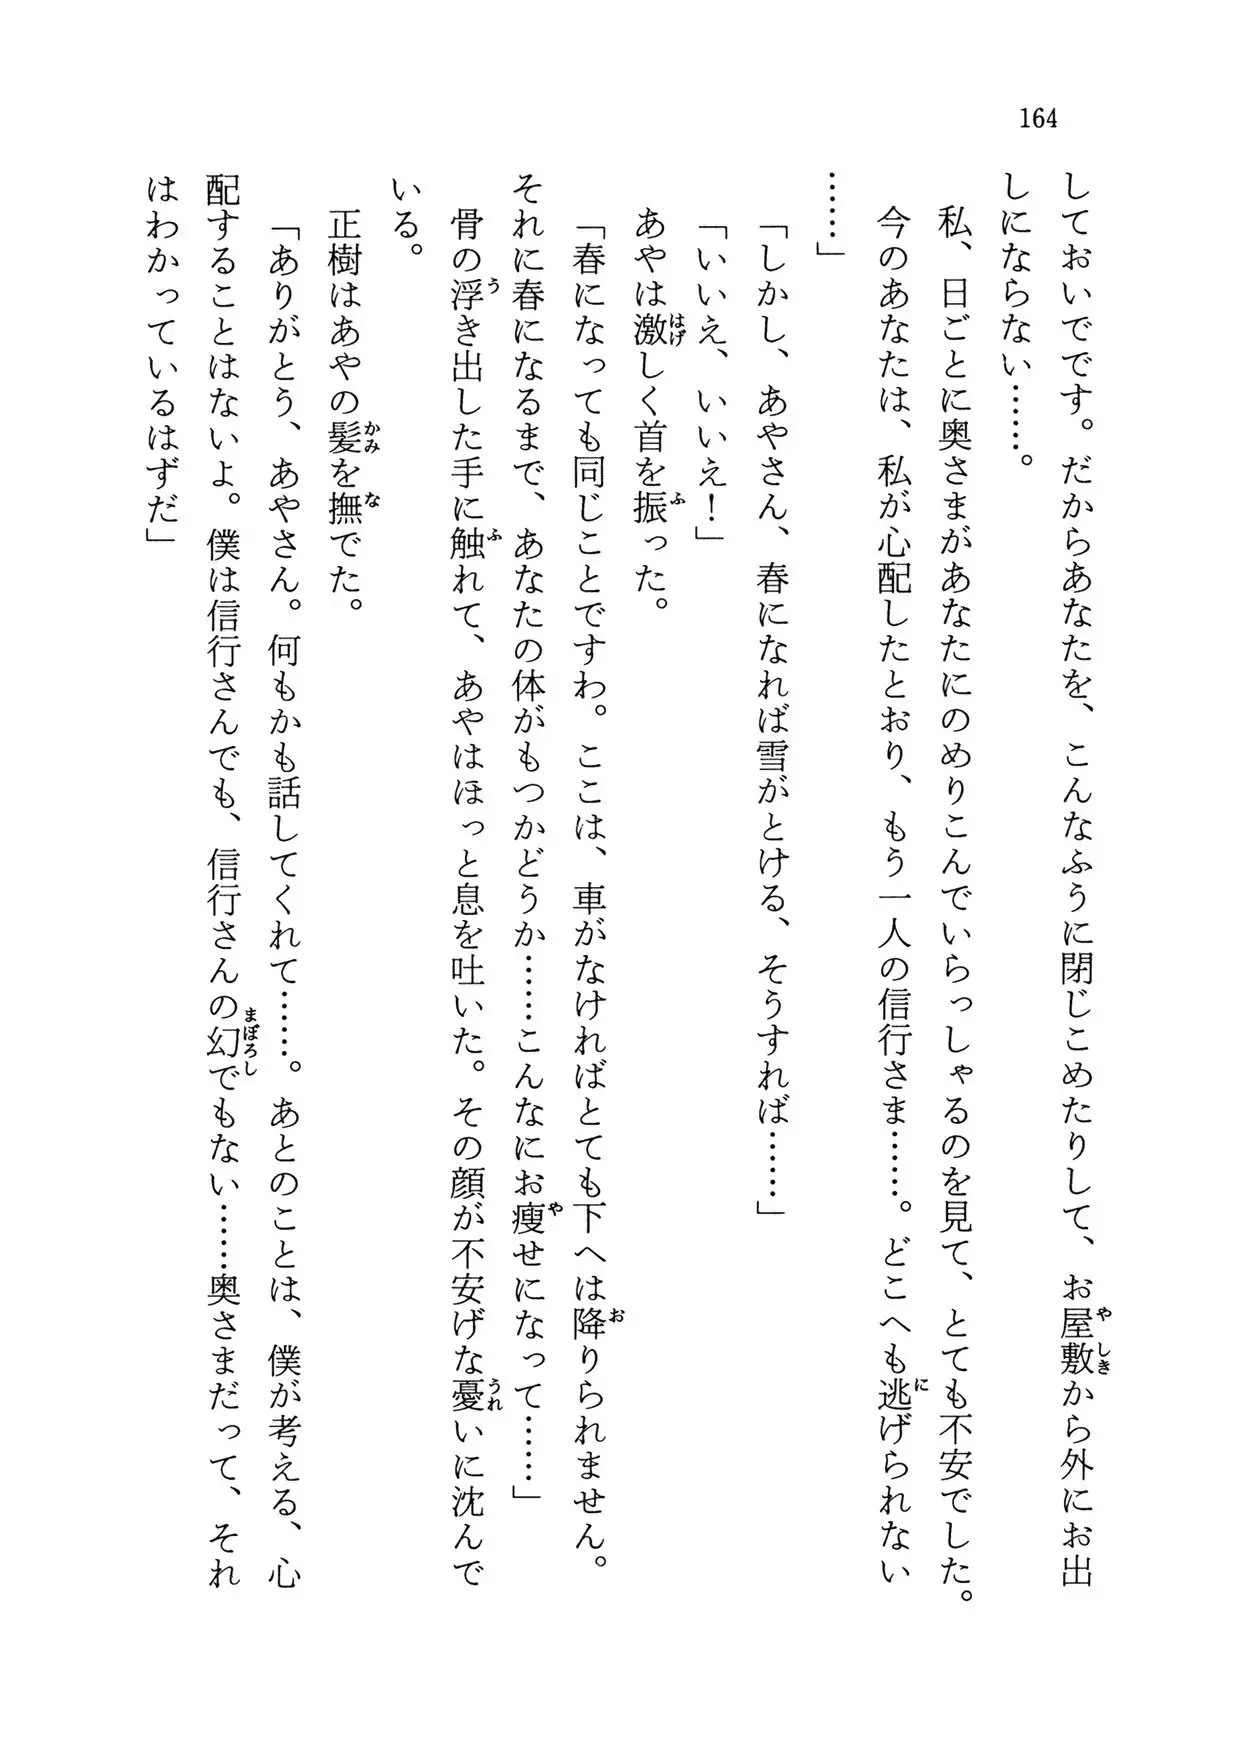 164
しておいでです。だからあなたを、こんなふうに閉じこめたりして、お屋敷から外にお出
しにならない……。
私、日ごとに奥さまがあなたにのめりこんでいらっしゃるのを見て、とても不安でした。
今のあなたは、私が心配したとおり、もう一人の信行さま……。どこへも逃げられない
……」
「しかし、あやさん、春になれば雪がとける、そうすれば……」
「いいえ、いいえ！」
あやは激しく首を振った。
「春になっても同じことですわ。ここは、車がなければとても下へは降りられません。
それに春になるまで、あなたの体がもつかどうか……こんなにお痩せになって……」
骨の浮き出した手に触れて、あやはほっと息を吐いた。その顔が不安げな憂いに沈んで
いる。
正樹はあやの髪を撫でた。
「ありがとう、あやさん。何もかも話してくれて……。あとのことは、僕が考える、心
配することはないよ。僕は信行さんでも、信行さんの幻でもない……奥さまだって、それ
はわかっているはずだ」